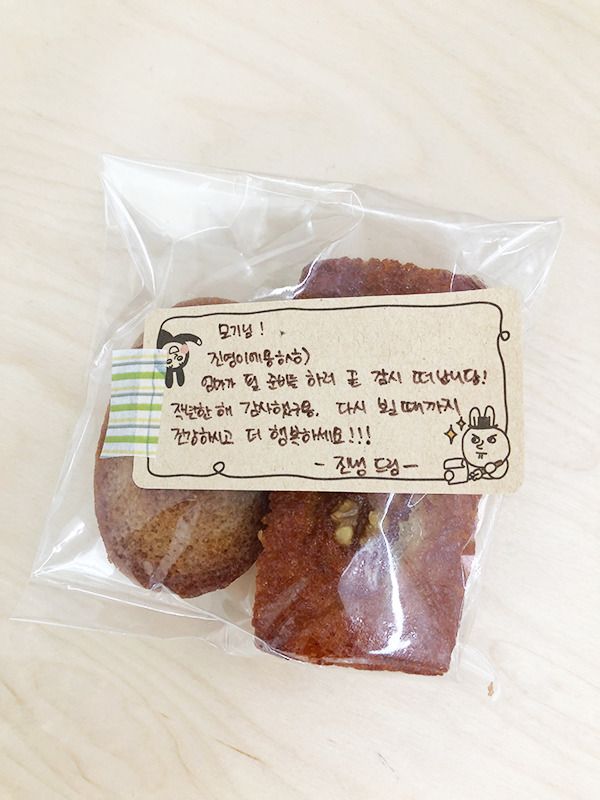 모기님!
진영이에용ㅎㅅㅎ)
엄마가 될 준비를 하러 곧 잠시 떠납니당!
작년한 해 감사했구용, 다시 뵐때까지
건강하시고 더 행복하세요!!!
- 진영 드림 -